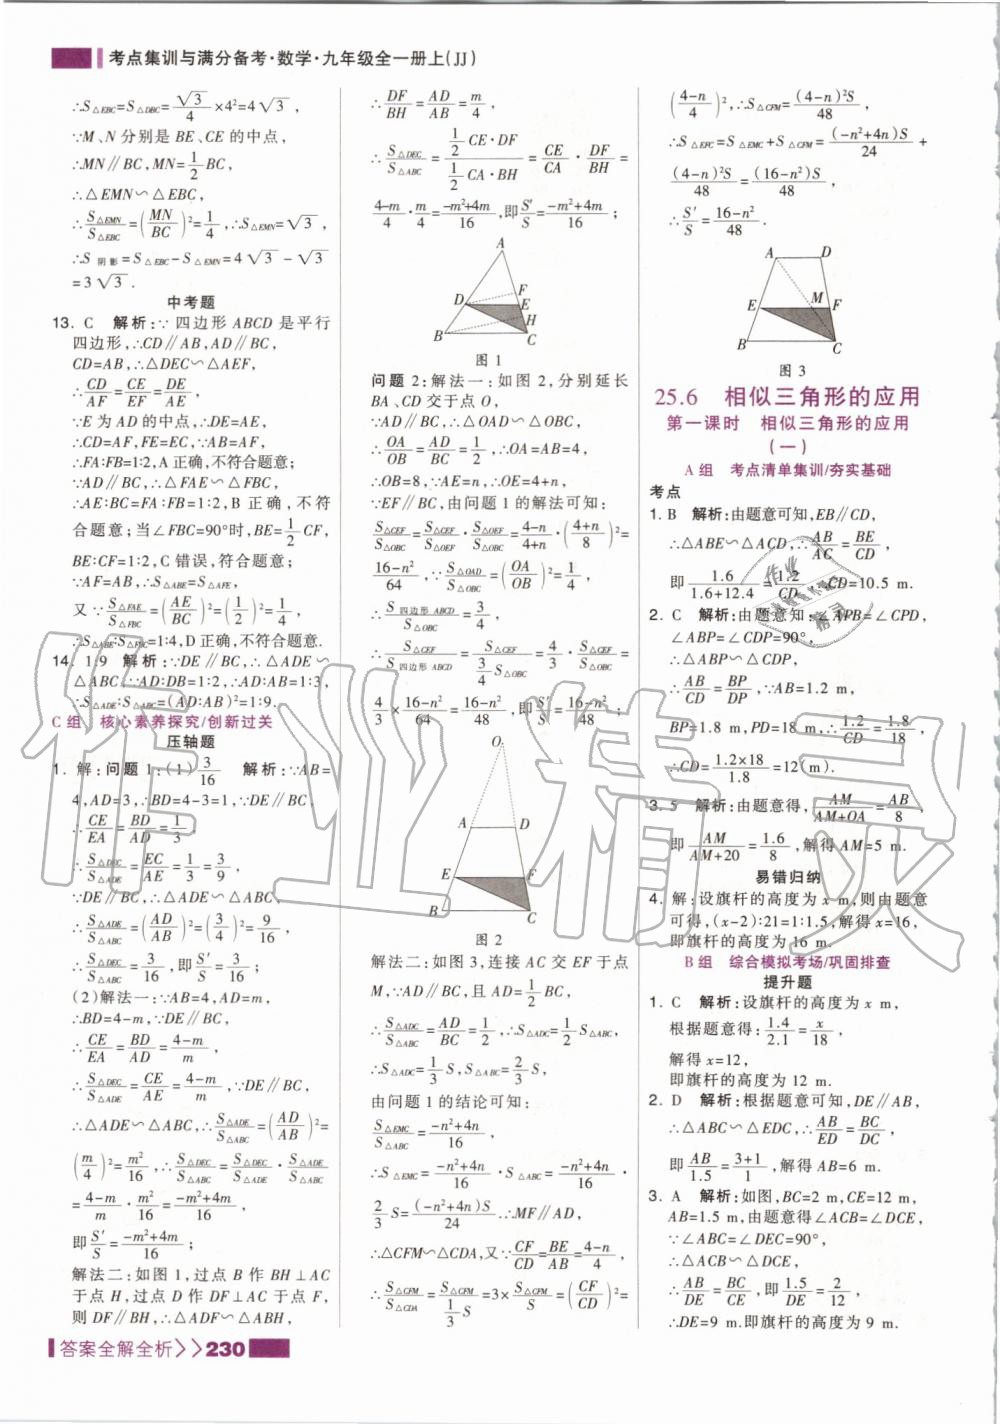 考点集训与满分备考·数学·九年级全一册上(JJ)
∴S△EBC=S△DBC=√3/4×4²=4√3,
∵M、N分别是BE、CE的中点,
∴MN∥BC,MN=1/2BC,
∴△EMN∽△EBC,
∴S△EMN/S△EBC=(MN/BC)²=1/4,∴S△EMN=√3,
∴S阴影=S△EBC-S△EMN=4√3-√3
=3√3.
中考题
13. C 解析:∵四边形ABCD是平行
四边形,∴CD∥AB,AD∥BC,
CD=AB,∴△DEC∽△AEF,
∴CD/AF=CE/EF=DE/AE,
∵E为AD的中点,∴DE=AE,
∴CD=AF,FE=EC,∵AB=AF,
∴FA∶FB=1∶2,A正确,不符合题意;
∵AD∥BC,∴△FAE∽△FBC,
∴AE∶BC=FA∶FB=1∶2,B正确,不符
合题意;当∠FBC=90°时,BE=1/2CF,
BE∶CF=1∶2,C错误,符合题意;
∵AF=AB,∴S△ABE=S△AFE,
又∵S△FAE/S△FBC=(AE/BC)²=(1/2)²=1/4,
∴S△ABE∶S△FBC=1∶4,D正确,不符合题意.
14. 1∶9 解析:∵DE∥BC,∴△ADE∽
△ABC,∵AD∶DB=1∶2,∴AD∶AB=1∶3,
∴S△ADE∶S△ABC=(AD∶AB)²=1∶9.
C组 核心素养探究/创新过关
压轴题
1. 解:问题1:(1)3/16 解析:∵AB=
4,AD=3,∴BD=4-3=1,∵DE∥BC,
∴CE/EA=BD/AD=1/3,
∴S△DEC/S△ADE=EC/AE=1/3=3/9,
∵DE∥BC,∴△ADE∽△ABC,
∴S△ADE/S△ABC=(AD/AB)²=(3/4)²=9/16,
∴S△DEC/S△ABC=3/16,即S′/S=3/16;
(2)解法一:∵AB=4,AD=m,
∴BD=4-m,∵DE∥BC,
∴CE/EA=BD/AD=4-m/m,
∴S△DEC/S△ADE=CE/AE=4-m/m,∵DE∥BC,
∴△ADE∽△ABC,∴S△ADE/S△ABC=(AD/AB)²=
(m/4)²=m²/16,∴S△DEC/S△ABC=S△DEC/S△ADE·S△ADE/S△ABC
=4-m/m·m²/16=-m²+4m/16,
即S′/S=-m²+4m/16;
解法二:如图1,过点B作BH⊥AC
于点H,过点D作DF⊥AC于点F,
则DF∥BH,∴△ADF∽△ABH,
∴DF/BH=AD/AB=m/4,
∴S△DEC/S△ABC=1/2CE·DF/1/2CA·BH=CE/CA·DF/BH=
4-m/4·m/4=-m²+4m/16,即S′/S=-m²+4m/16;
A
F
D
E
H
B
C
图1
问题2:解法一:如图2,分别延长
BA、CD交于点O,
∵AD∥BC,∴△OAD∽△OBC,
∴OA/OB=AD/BC=1/2,∴OA=AB=4,
∴OB=8,∵AE=n,∴OE=4+n,
∵EF∥BC,由问题1的解法可知:
S△CEF/S△OBC=S△CEF/S△OEF·S△OEF/S△OBC=4-n/4+n·(4+n/8)²=
16-n²/64,∵S△OAD/S△OBC=(OA/OB)²=1/4,
∴S四边形ABCD/S△OBC=3/4,
∴S△CEF/S四边形ABCD=S△CEF/3/4S△OBC=4/3·S△CEF/S△OBC=
4/3×16-n²/64=16-n²/48,即S′/S=16-n²/48;
O
A
D
E
F
B
C
图2
解法二:如图3,连接AC交EF于点
M,∵AD∥BC,且AD=1/2BC,
∴S△ADC/S△ABC=AD/BC=1/2,∴S△ADC=1/2S△ABC,
∴S△ADC=1/3S,S△ABC=2/3S,
由问题1的结论可知:
S△EMC/S△ABC=-n²+4n/16,
∴S△EMC=-n²+4n/16·S△ABC=-n²+4n/16·
2/3S=(-n²+4n)S/24∵MF∥AD,
∴△CFM∽△CDA,又∵CF/CD=BE/AB=4-n/4,
∴S△CFM/S△CDA=S△CFM/1/3S=3×S△CFM/S=(CF/CD)²=
(4-n/4)²,∴S△CFM=(4-n)²S/48,
∴S△EFC=S△EMC+S△CFM=(-n²+4n)S/24+
(4-n)²S/48=(16-n²)S/48,
∴S′/S=16-n²/48.
A
D
E
M
F
B
C
图3
25.6 相似三角形的应用
第一课时 相似三角形的应用
(一)
A组 考点清单集训/夯实基础
考点
1. B 解析:由题意可知,EB∥CD,
∴△ABE∽△ACD,∴AB/AC=BE/CD,
即1.6/1.6+12.4=1.2/CD,∴CD=10.5 m.
2. C 解析:由题意知:∠APB=∠CPD,
∠ABP=∠CDP=90°,
∴△ABP∽△CDP,
∴AB/CD=BP/DP,∵AB=1.2 m,
BP=1.8 m,PD=18 m,∴1.2/CD=1.8/18,
∴CD=1.2×18/1.8=12(m).
3. 5 解析:由题意得,AM/AM+OA=AB/8,
即AM/AM+20=1.6/8,解得AM=5 m.
易错归纳
4. 解:设旗杆的高度为x m,则由题意
可得,(x-2)∶21=1∶1.5,解得x=16,
即旗杆的高度为16 m.
B组 综合模拟考场/巩固排查
提升题
1. C 解析:设旗杆的高度为x m,
根据题意得:1.4/2.1=x/18,
解得x=12,
即旗杆的高度为12 m.
2. D 解析:根据题意可知,DE∥AB,
∴△ABC∽△EDC,∴AB/ED=BC/DC,
即AB/1.5=3+1/1,解得AB=6 m.
3. A 解析:如图,BC=2 m,CE=12 m,
AB=1.5 m,由题意得∠ACB=∠DCE,
∵∠ABC=∠DEC=90°,
∴△ACB∽△DCE,
∴AB/DE=BC/CE,即1.5/DE=2/12,
∴DE=9 m.即旗杆的高度为9 m.
答案全解全析>>230
作业精灵